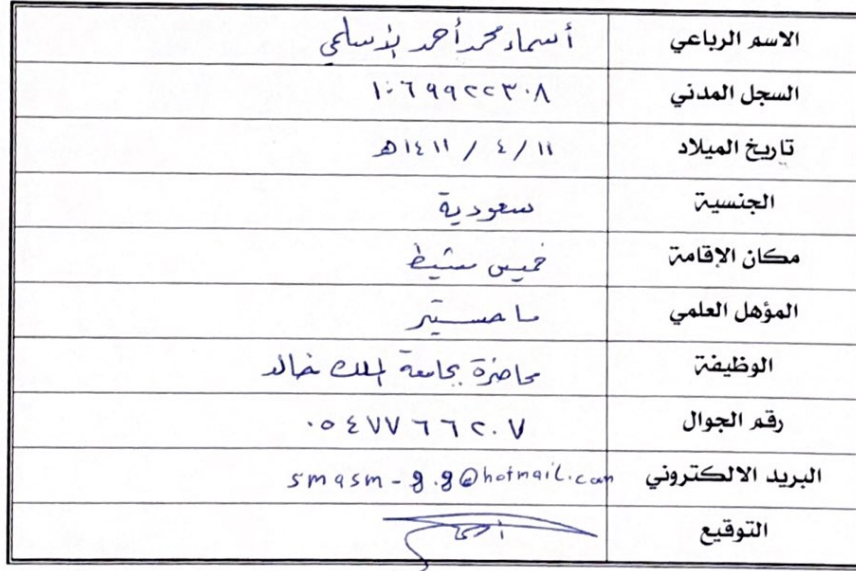 الاسم الرباعي أسماء محمد أحمد الأسلمي
السجل المدني ١٠٦٩٩٢٢٣٠٨
تاريخ الميلاد ١١ / ٤ / ١٤١١هـ
الجنسية سعودية
مكان الإقامة خميس مشيط
المؤهل العلمي ماجستير
الوظيفة محاضرة بجامعة الملك خالد
رقم الجوال ٠٥٤٧٧٦٦٢٠٧
البريد الالكتروني smasm-g.g@hotmail.com
التوقيع